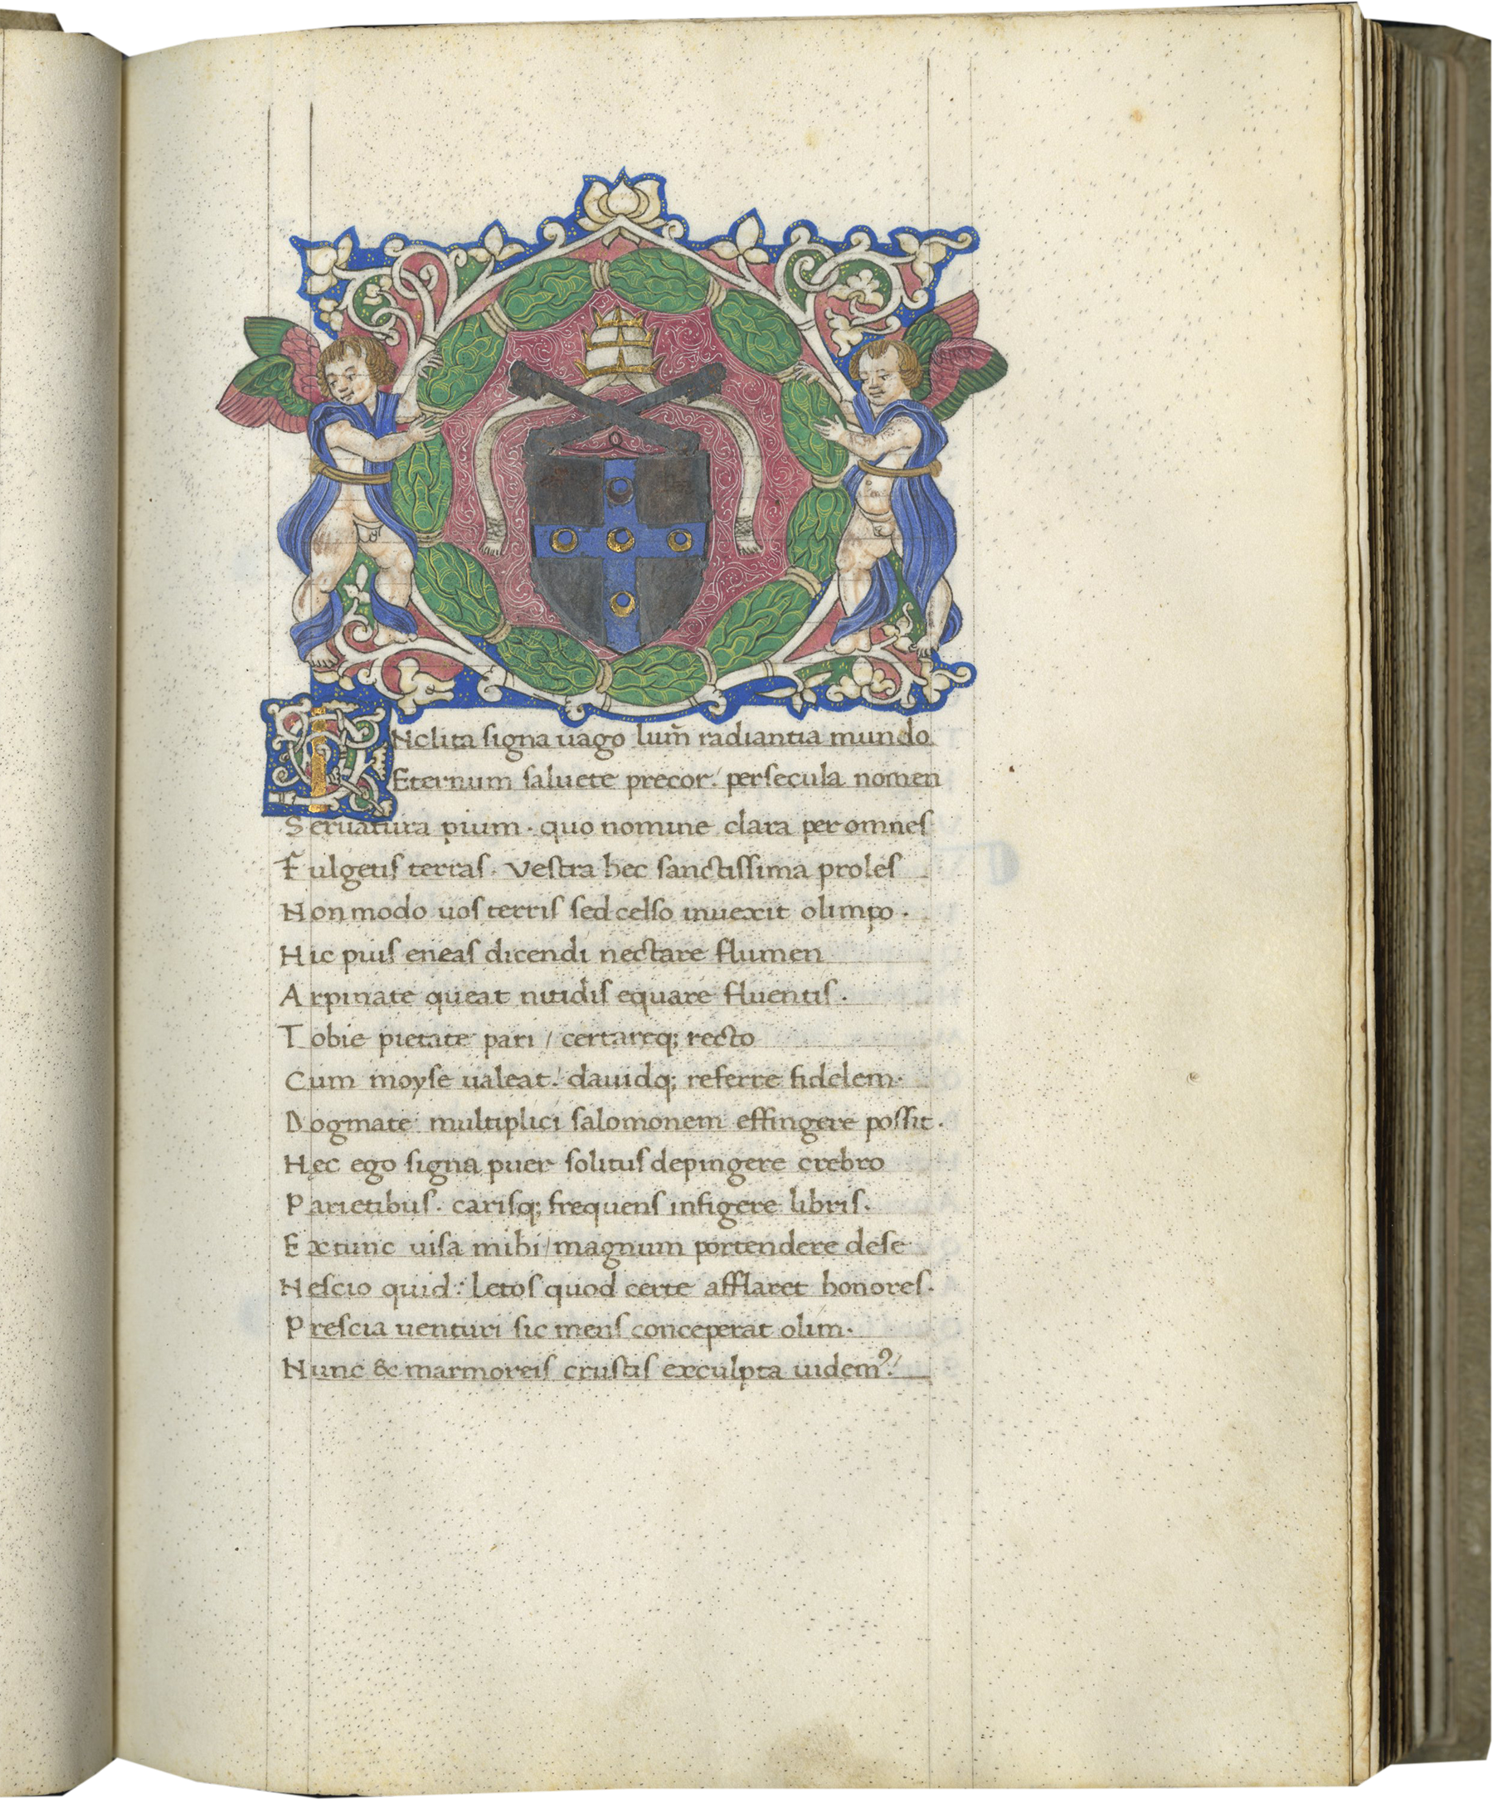 INclita signa uago lum̄ radiantia mundo
Eternum saluete precor. per secula nomen
Seruatura pium. quo nomine clara per omnes
Fulgetis terras. Vestra hec sanctissima proles
Non modo uos terris sed celso inuexit olimpo.
Hic pius eneas dicendi nectare flumen
Arpinate queat nitidis equare fluentis.
Tobie pietate pari / certareq; recto
Cum moyse ualeat / dauidq; referre fidelem.
Dogmate multiplici salomonem effingere possit.
Hec ego signa puer solitus depingere crebro
Parietibus. carisq; frequens infigere libris.
Ex tunc uisa mihi / magnum portendere de se
Nescio quid: Letos quod certe afflaret honores.
Prescia uenturi sic mens conceperat olim.
Nunc & marmoreis crustis exculpta uidem?/